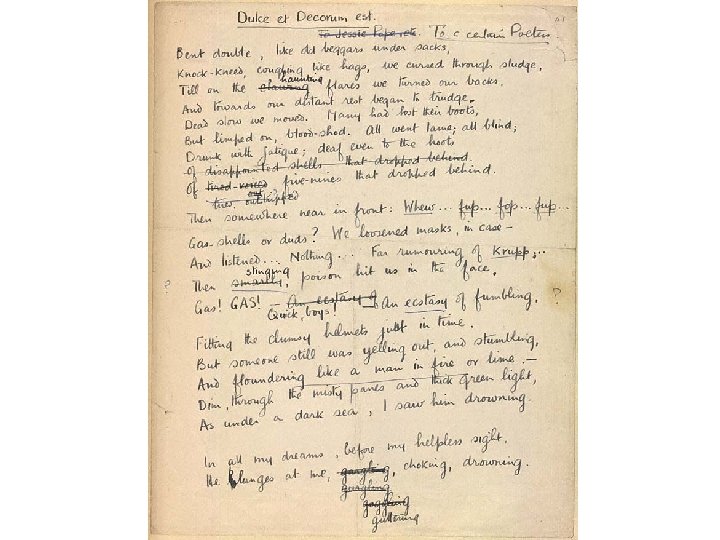 Dulce et Decorum est.
To Jessie Pope etc. To a certain Poetess
Bent double, like old beggars under sacks,
Knock-kneed, coughing like hags, we cursed through sludge,
haunting
Till on the clawing flares we turned our backs,
And towards our distant rest began to trudge.
Dead slow we moved. Many had lost their boots,
But limped on, blood-shod. All went lame; all blind;
Drunk with fatigue; deaf even to the hoots
Of disappointed shells that dropped behind.
Of tired-voiced five-nines that dropped behind.
tired, outstripped
Then somewhere near in front: Whew... fup... fop... fup...
Gas-shells or duds? We loosened masks, in case —
And listened... Nothing... Far rumouring of Krupp;..
stinging
Then smartly, poison hit us in the face.
?
Gas! GAS! — An ecstasy of An ecstasy of fumbling, ?
Quick, boys!
Fitting the clumsy helmets just in time.
But someone still was yelling out, and stumbling,
And floundering like a man in fire or lime. —
Dim, through the misty panes and thick green light,
As under a dark sea, I saw him drowning.
In all my dreams, before my helpless sight,
He plunges at me, gargling, choking, drowning.
gurgling
goggling
guttering